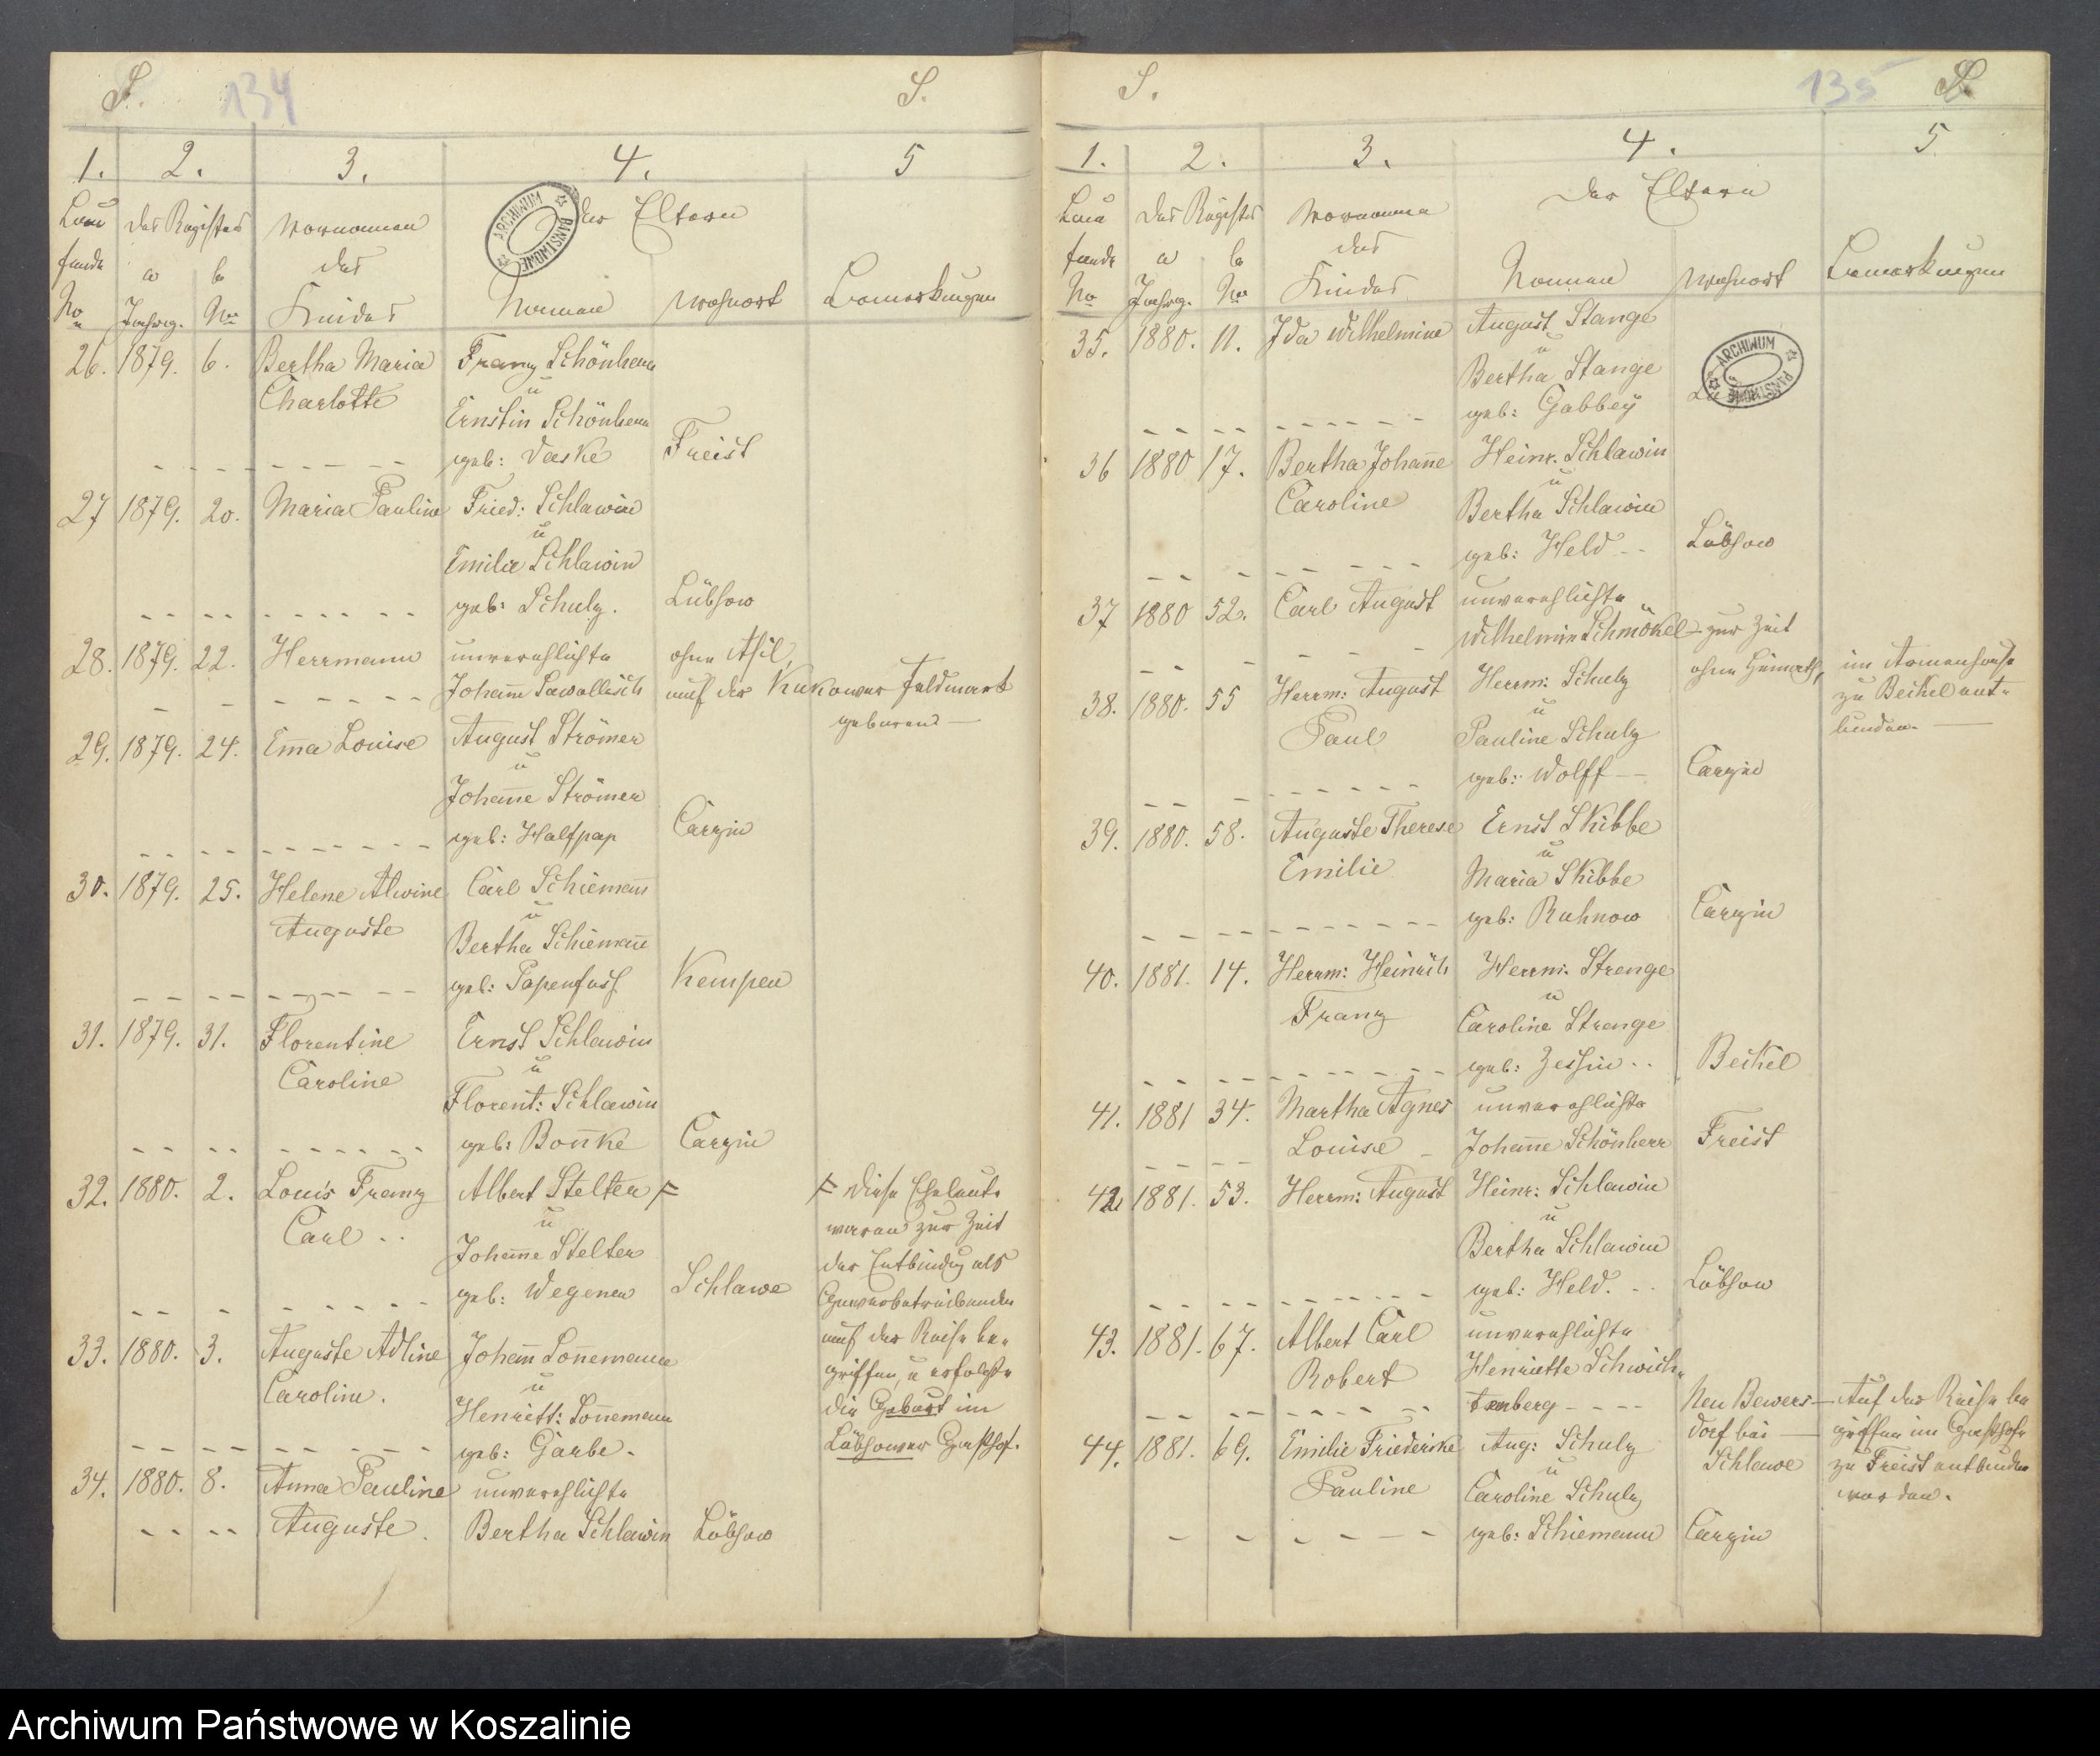 S. 134 S.
1. 2. 3. 4. 5
Lau des Registers Vornamen der Eltern
fende a b des
No Jahrg. No Kindes Namen Wohnort Bemerkungen
26. 1879. 6. Bertha Maria Franz Schönherr
Charlotte u
Ernstin Schönherr
geb: Daske Freist
27 1879. 20. Maria Pauline Fried: Schlawin
u
Emilie Schlawin
geb: Schulz. Lübsow
28. 1879. 22. Herrmann unverehlichte ohne Asil,
Johann auf der Kukower Feldmark
geboren
29. 1879. 24. Em̄a Louise August Strömer
u
Johan̄e Strömer
geb: Halfpap Carzin
30. 1879. 25. Helene Alwine Carl Schieman̄
Auguste u
Bertha Schieman̄
geb: Papenfuss Kempen
31. 1879. 31. Florentine Ernst Schlawin
Caroline u
Florent: Schlawin
geb: Bon̄ke Carzin
32. 1880. 2. Louis Franz Albert Stelter ╒ ╒ Diese Eheleute
Carl .. u waren zur Zeit
Johan̄e Stelter der Entbindg als
geb: Wegener Schlawe Gewerbetreibende
33. 1880. 3. Auguste Adline Johan̄ Son̄emann auf der Reise be=
Caroline. u griffen, u erfolgte
Henriett: Son̄emann die Geburt im
geb: Garbe. Lübsower Gasthof.
34. 1880. 8. Anna Pauline unverehlichte
Auguste. Bertha Schlawin Lübsow
S. 135 S.
1. 2. 3. 4. 5
Lau des Registers Vornamen der Eltern
fende a b des
No Jahrg. No Kindes Namen Wohnort Bemerkungen
35. 1880. 11. Ida Wilhelmine August Stange
u
Bertha Stange
geb: Gabbey
36 1880 17. Bertha Johan̄e Heinr. Schlawin
Caroline u
Bertha Schlawin
geb: Held Lübsow
37 1880 52. Carl August unverehlichte
Wilhelmin Schmökel zur Zeit
ohne Heimath, im Armenhause
zu Beckel ent=
bunden.
38. 1880. 55 Herrm: August Herrm: Schulz
Paul u
Pauline Schulz
geb: Wolff Carzin
39. 1880. 58. Auguste Therese Ernst Skibbe
Emilie u
Maria Skibbe
geb: Ruhnow Carzin
40. 1881. 14. Herrm: Heinrich Herrm: Strenge
Franz u
Caroline Strenge
geb: Zessin .. Beckel
41. 1881 34. Martha Agnes unverehlichte
Louise Johan̄e Schönherr Freist
42 1881. 53. Herrm: August Heinr: Schlawin
u
Bertha Schlawin
geb: Held. Lübsow
43. 1881. 67. Albert Carl unverehlichte
Robert Henriette Schwich=
tenberg Neu Bewers= Auf der Reise be
dorf bei griffen im Gasthofe
Schlawe zu Freist entbunden
worden.
44. 1881. 69. Emilie Friederike Aug: Schulz
Pauline u
Caroline Schulz
geb: Schiemann Carzin
ARCHIWUM PAŃSTWOWE
ARCHIWUM PAŃSTWOWE
Archiwum Państwowe w Koszalinie